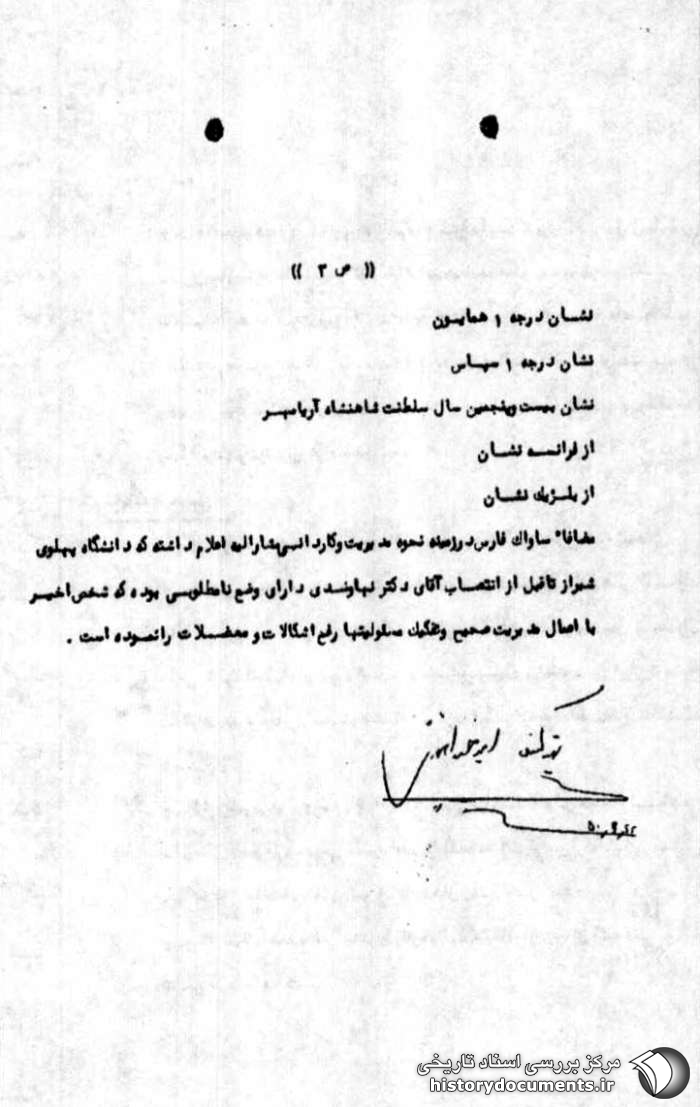 (( ص ۳ ))
نشان درجه ۱ همایون
نشان درجه ۱ سپاس
نشان بیست وپنجمین سال سلطنت شاهنشاه آریامهر
از فرانسه نشان
از بلژیک نشان
مضافا" ساواک فارس درزمینه نحوه مدیریت وکاردانی مشارالیه اعلام داشته که دانشگاه پهلوی
شیراز تاقبل از انتصاب آقای دکتر نهاوندی دارای وضع نامطلوبی بوده که شخص اخیر
با اعمال مدیریت صحیح وتفکیک مسئولیتها رفع اشکالات و معضلات رانموده است .
مرکز بررسی اسناد تاریخی
historydocuments.ir